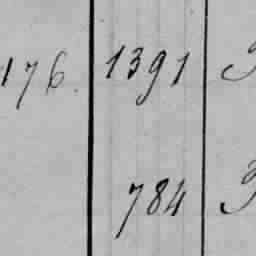 176. 1391
784